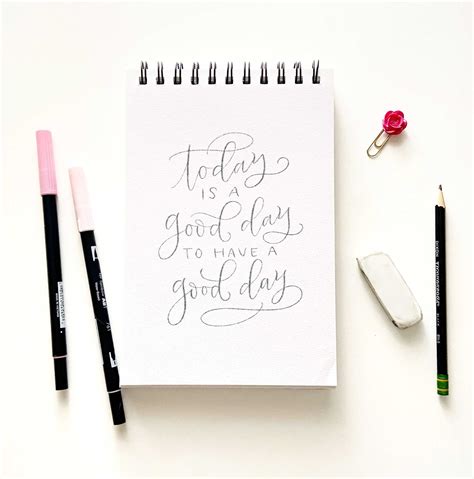 today
IS A
good day
TO HAVE A
good day